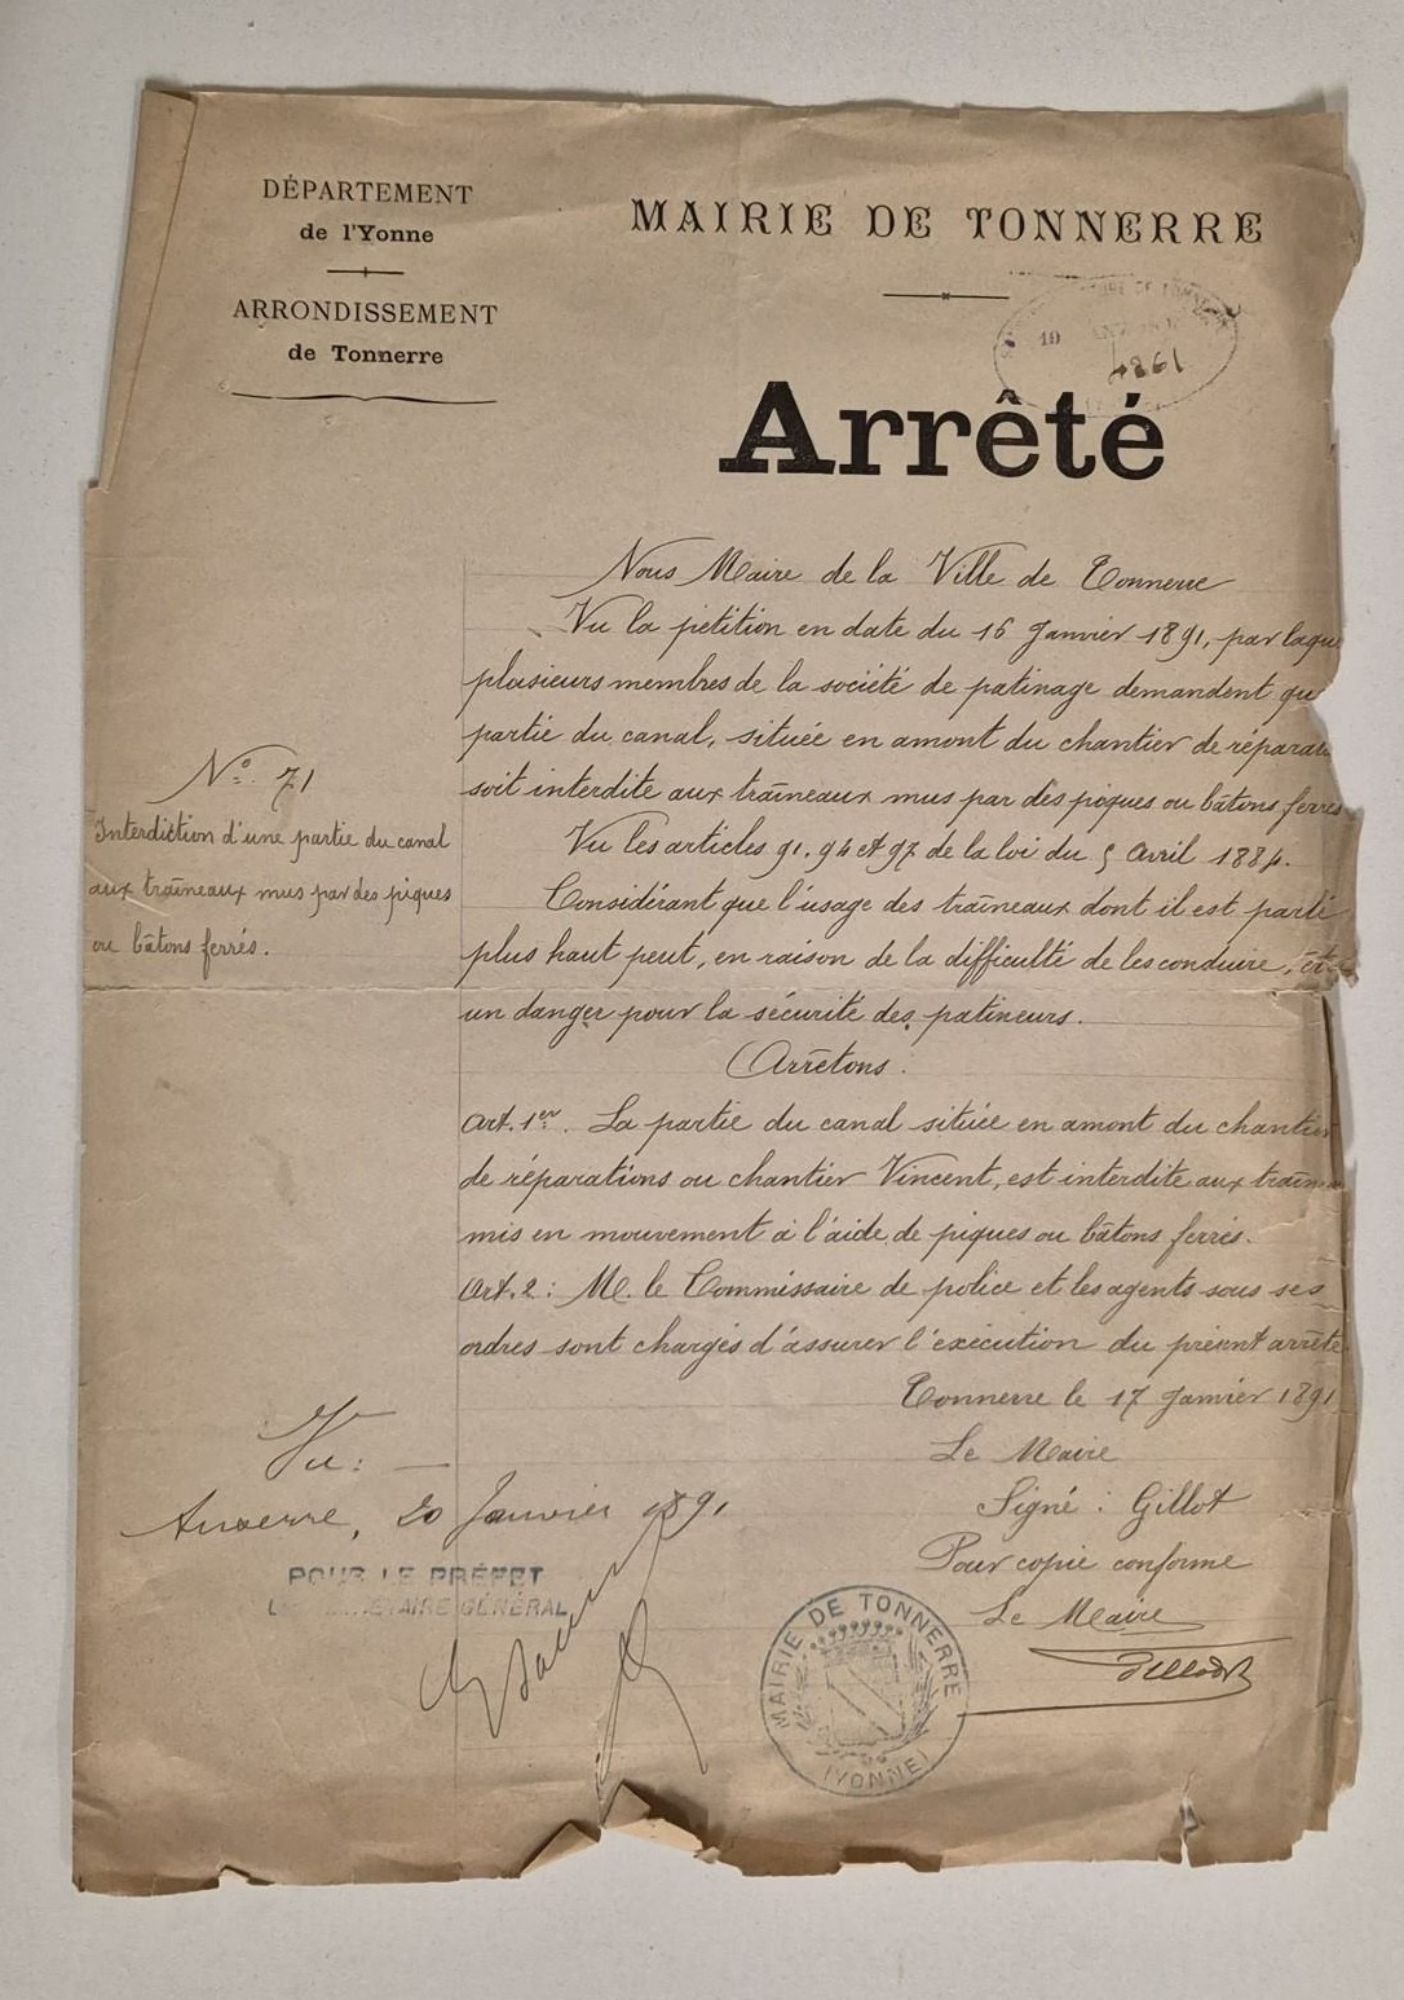 DÉPARTEMENT
de l'Yonne
ARRONDISSEMENT
de Tonnerre
MAIRIE DE TONNERRE
19
1984
Arrêté
Nous Maire de la Ville de Tonnerre
Vu la pétition en date du 16 Janvier 1891, par laqu
plusieurs membres de la société de patinage demandent qu
partie du canal, située en amont du chantier de réparat
soit interdite aux traîneaux mus par des piques ou bâtons ferrés
Vu les articles 91. 94 et 97 de la loi du 5 Avril 1884.
Considérant que l'usage des traîneaux dont il est parlé
plus haut peut, en raison de la difficulté de les conduire, êt
un danger pour la sécurité des patineurs.
Arrêtons.
Art. 1er. La partie du canal située en amont du chantier
de réparations ou chantier Vincent, est interdite aux traîn
mis en mouvement à l'aide de piques ou bâtons ferrés.
Art. 2: M. le Commissaire de police et les agents sous ses
ordres sont chargés d'assurer l'exécution du présent arrêté
Tonnerre le 17 Janvier 1891
Le Maire
Signé : Gillot
Pour copie conforme
Le Maire
MAIRIE DE TONNERRE
(YONNE)
No. 71
Interdiction d'une partie du canal
aux traîneaux mus par des piques
ou bâtons ferrés.
Vu:
Auxerre, 20 Janvier 1891
POUR LE PRÉFET
GÉNÉRAL